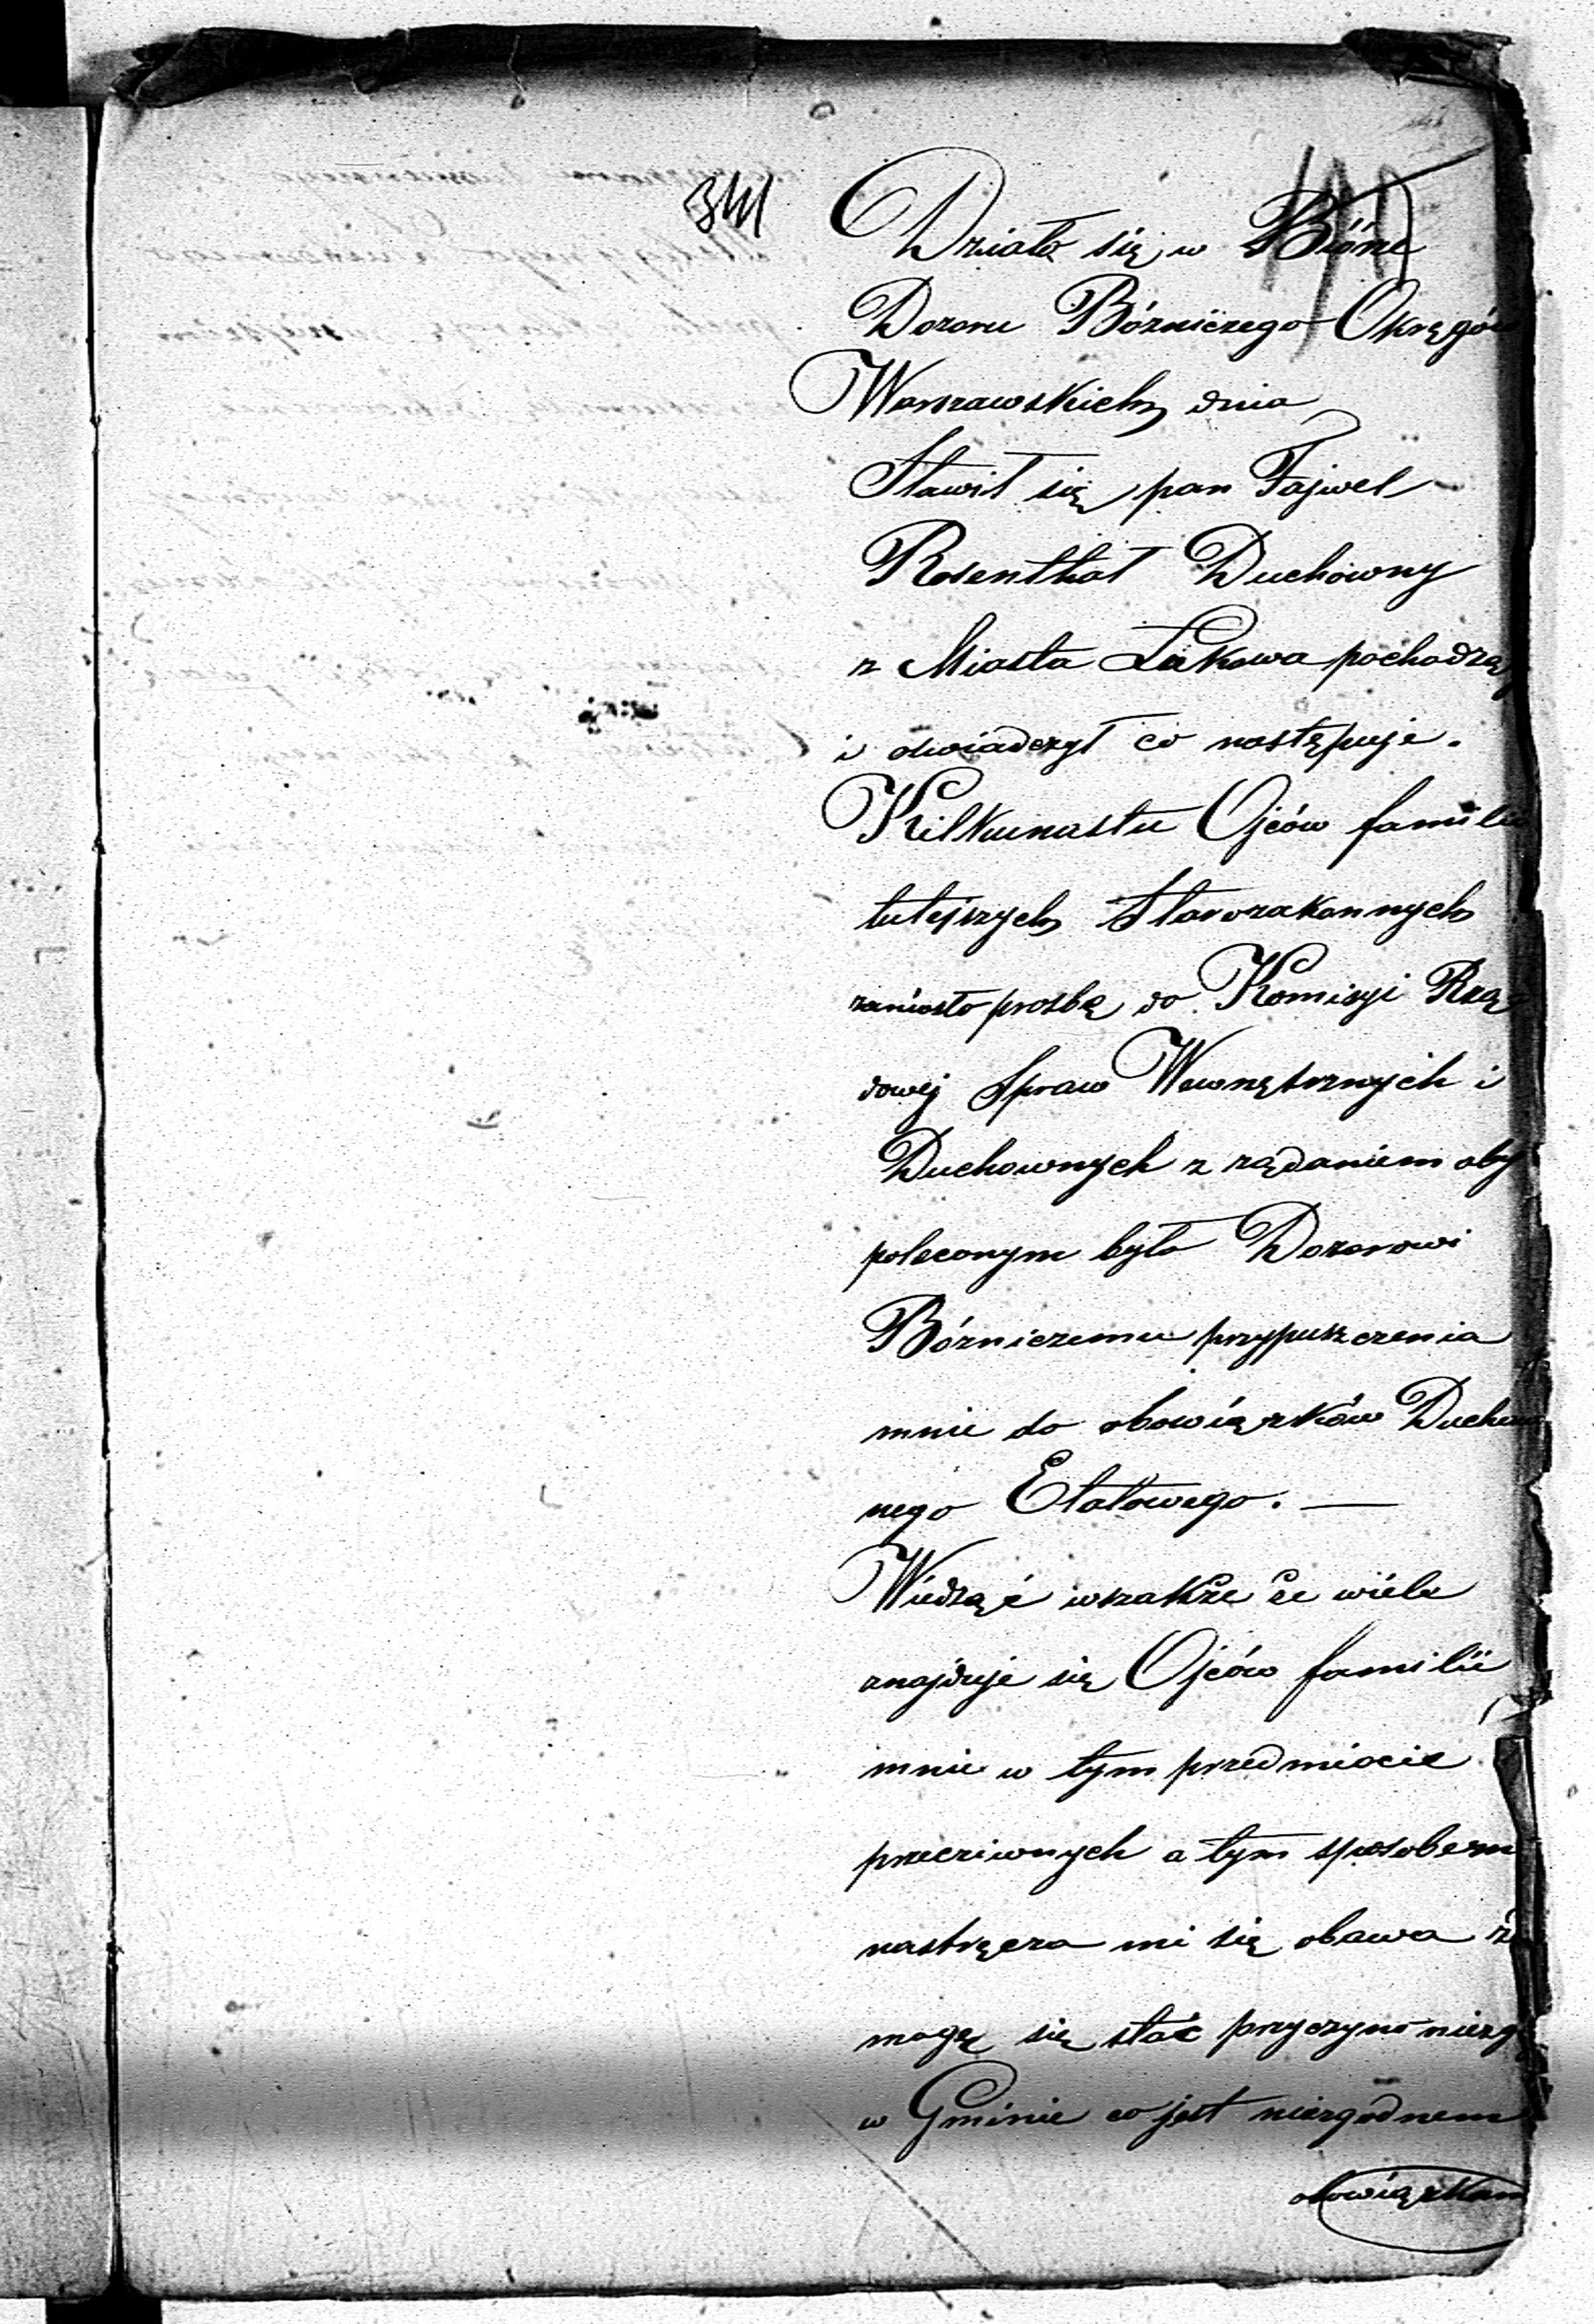 341
Działo się w Biórze
Dozoru Bóżniczego Okręgów
Warszawskich dnia
Stawił się pan Fajwel
Rosenthal Duchowny
z Miasta Łukowa pochodzą
i oświadczył co następuje.
Kilkunastu Ojców familii
tutejszych Starozakonnych
zaniosło prosbę do Komisyi Rzą
dowej Spraw Wewnętrznych i
Duchownych z rządaniem aby
poleconym było Dozorowi
Bózniczemu przypuszczenia
mnie do obowiązków Duchow
nego Etatowego. —
Wiedząc wszakże że wiele
znajduje się Ojców familii
mnie w tym przedmiocie
przeciwnych a tym sposobem
nastręcza mi się obawa że
mogę się stać przyczyną niezg
w Gminie co jest niezgodnem
obowiązkom